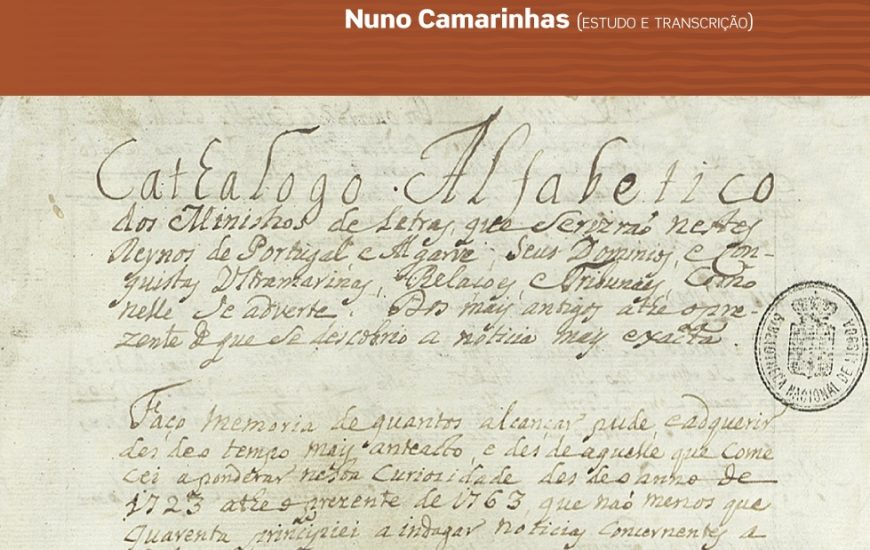 Nuno Camarinhas (ESTUDO E TRANSCRIÇÃO)
Cathalogo Alfabetico
dos Ministros de Letras, que Servirão nestes
Reynos de Portugal, e Algarve, Seus Dominios, e Con-
quistas Ultramarinas, Relações, e Tribunaes, Como
nelle Se adverte. Dos mais antigos athe o pre-
zente de que Se descobrio a noticia mais exacta.
BIBLIOTHECA NACIONAL DE LISBOA
Faço memoria de quantos alcançar pude, e adquerir
des de o tempo mais anteacto, e des de aquelle que Come
cei a ponderar nesta Curiosidade des de o anno de
1723 athe o prezente de 1763, que naõ menos que
quarenta principiei a indagar noticias concernentes a